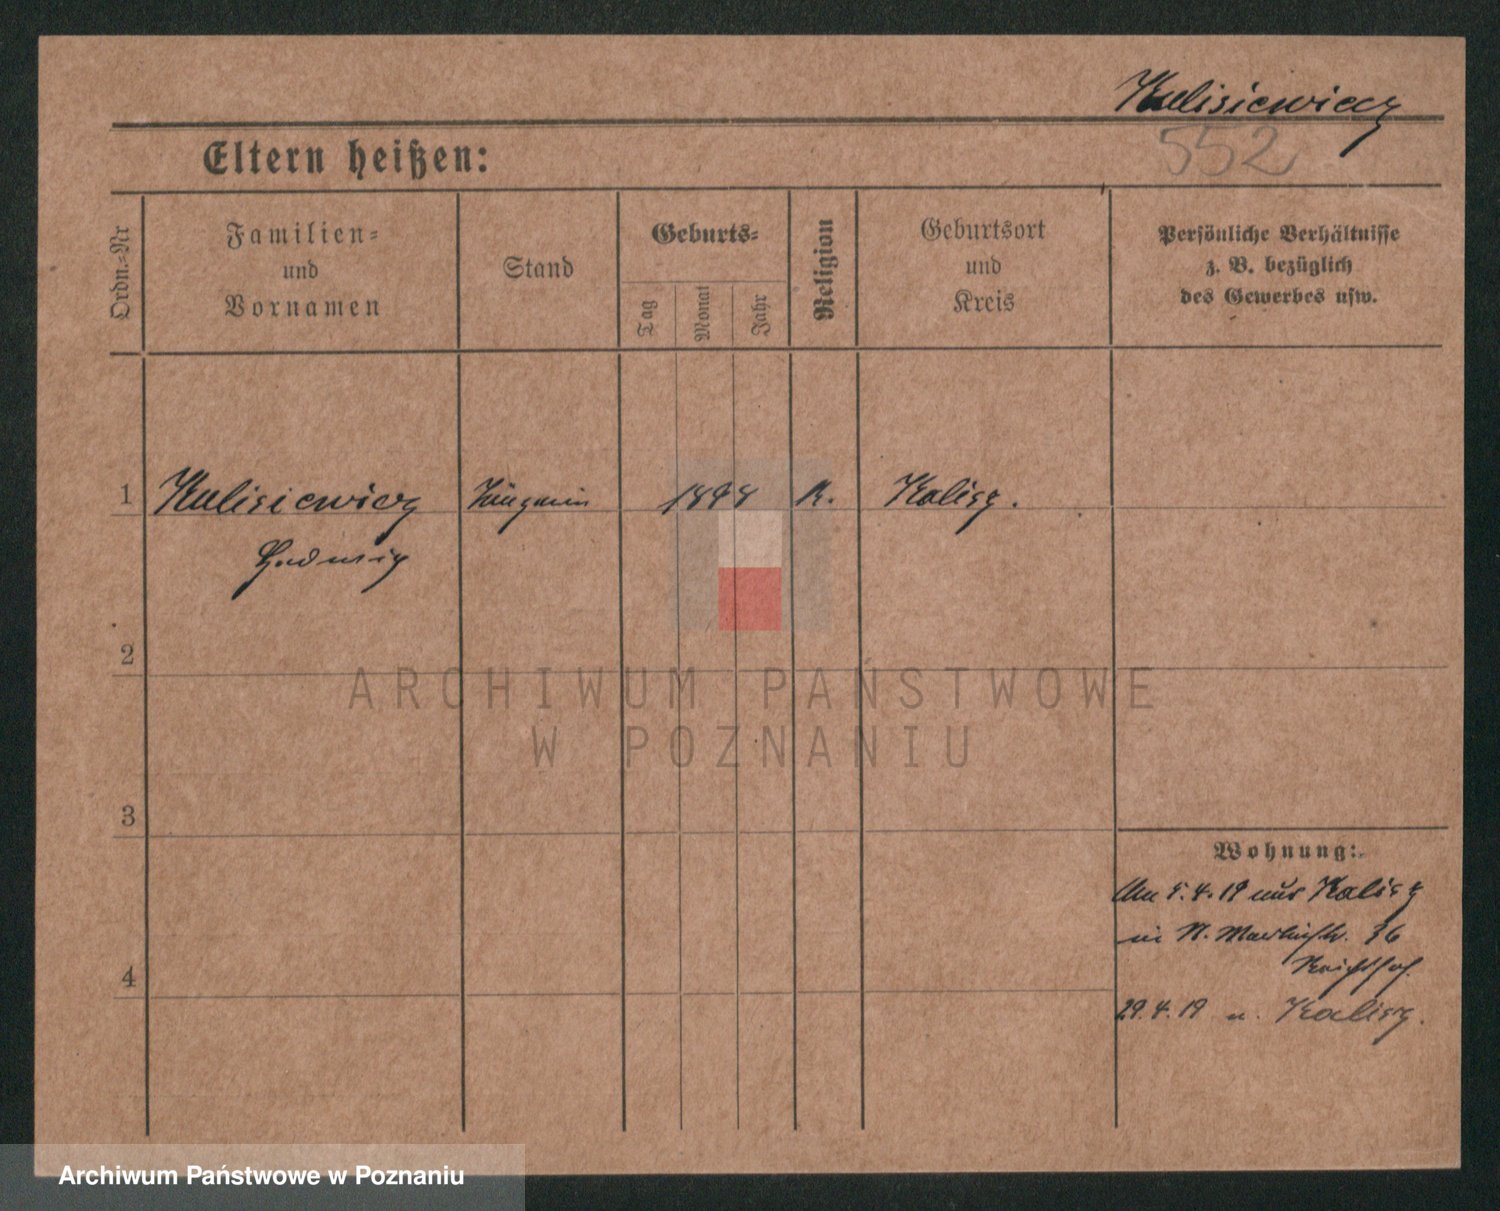 Kulisiewicz
552
Eltern heißen:
Ordn.=Nr
Familien=
und
Vornamen
Stand
Geburts=
Tag
Monat
Jahr
Religion
Geburtsort
und
Kreis
Persönliche Verhältnisse
z. B. bezüglich
des Gewerbes usw.
1 Kulisiewicz 1898 K. Kalisz.
Hedwig
2
3
4
Wohnung:
Am 5.4.19 aus Kalisz
in St. Martinstr. 36
29.4.19 n. Kalisz.
ARCHIWUM PAŃSTWOWE
W POZNANIU
Archiwum Państwowe w Poznaniu